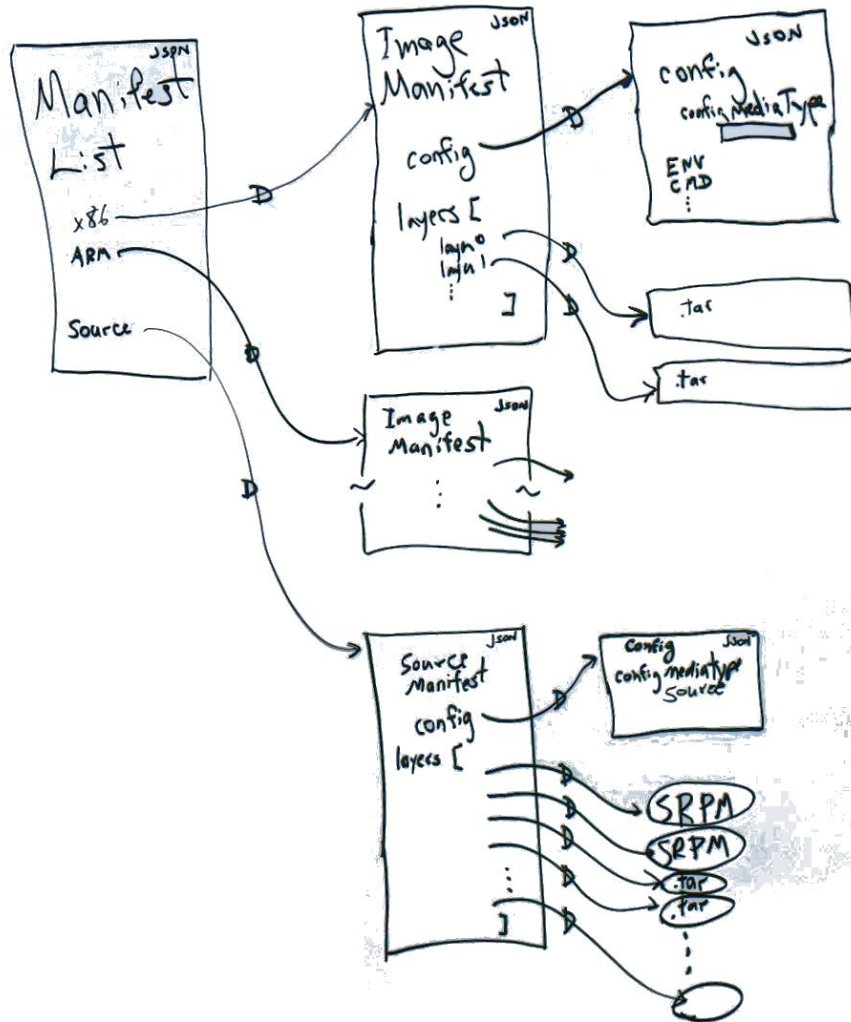 JSON
Manifest
List
x86
ARM
Source
D
D
D
JSON
Image
Manifest
config
layers [
layer 0
layer 1
⋮
]
D
D
D
JSON
config
configMediaType
ENV
CMD
⋮
.tar
.tar
JSON
Image
Manifest
⋮
~
~
JSON
Source
Manifest
config
layers [
⋮
]
D
D
D
D
D
D
JSON
config
configmediatype
source
SRPM
SRPM
.tar
.tar